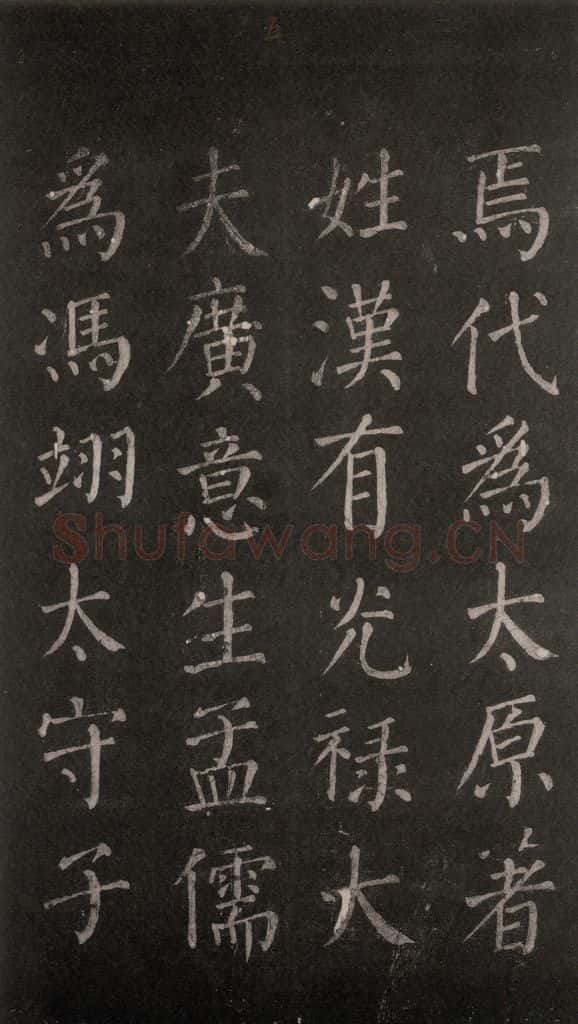 五
焉代爲太原著
姓漢有光禄大
夫廣意生孟儒
爲馮翊太守子
Shufawang.CN